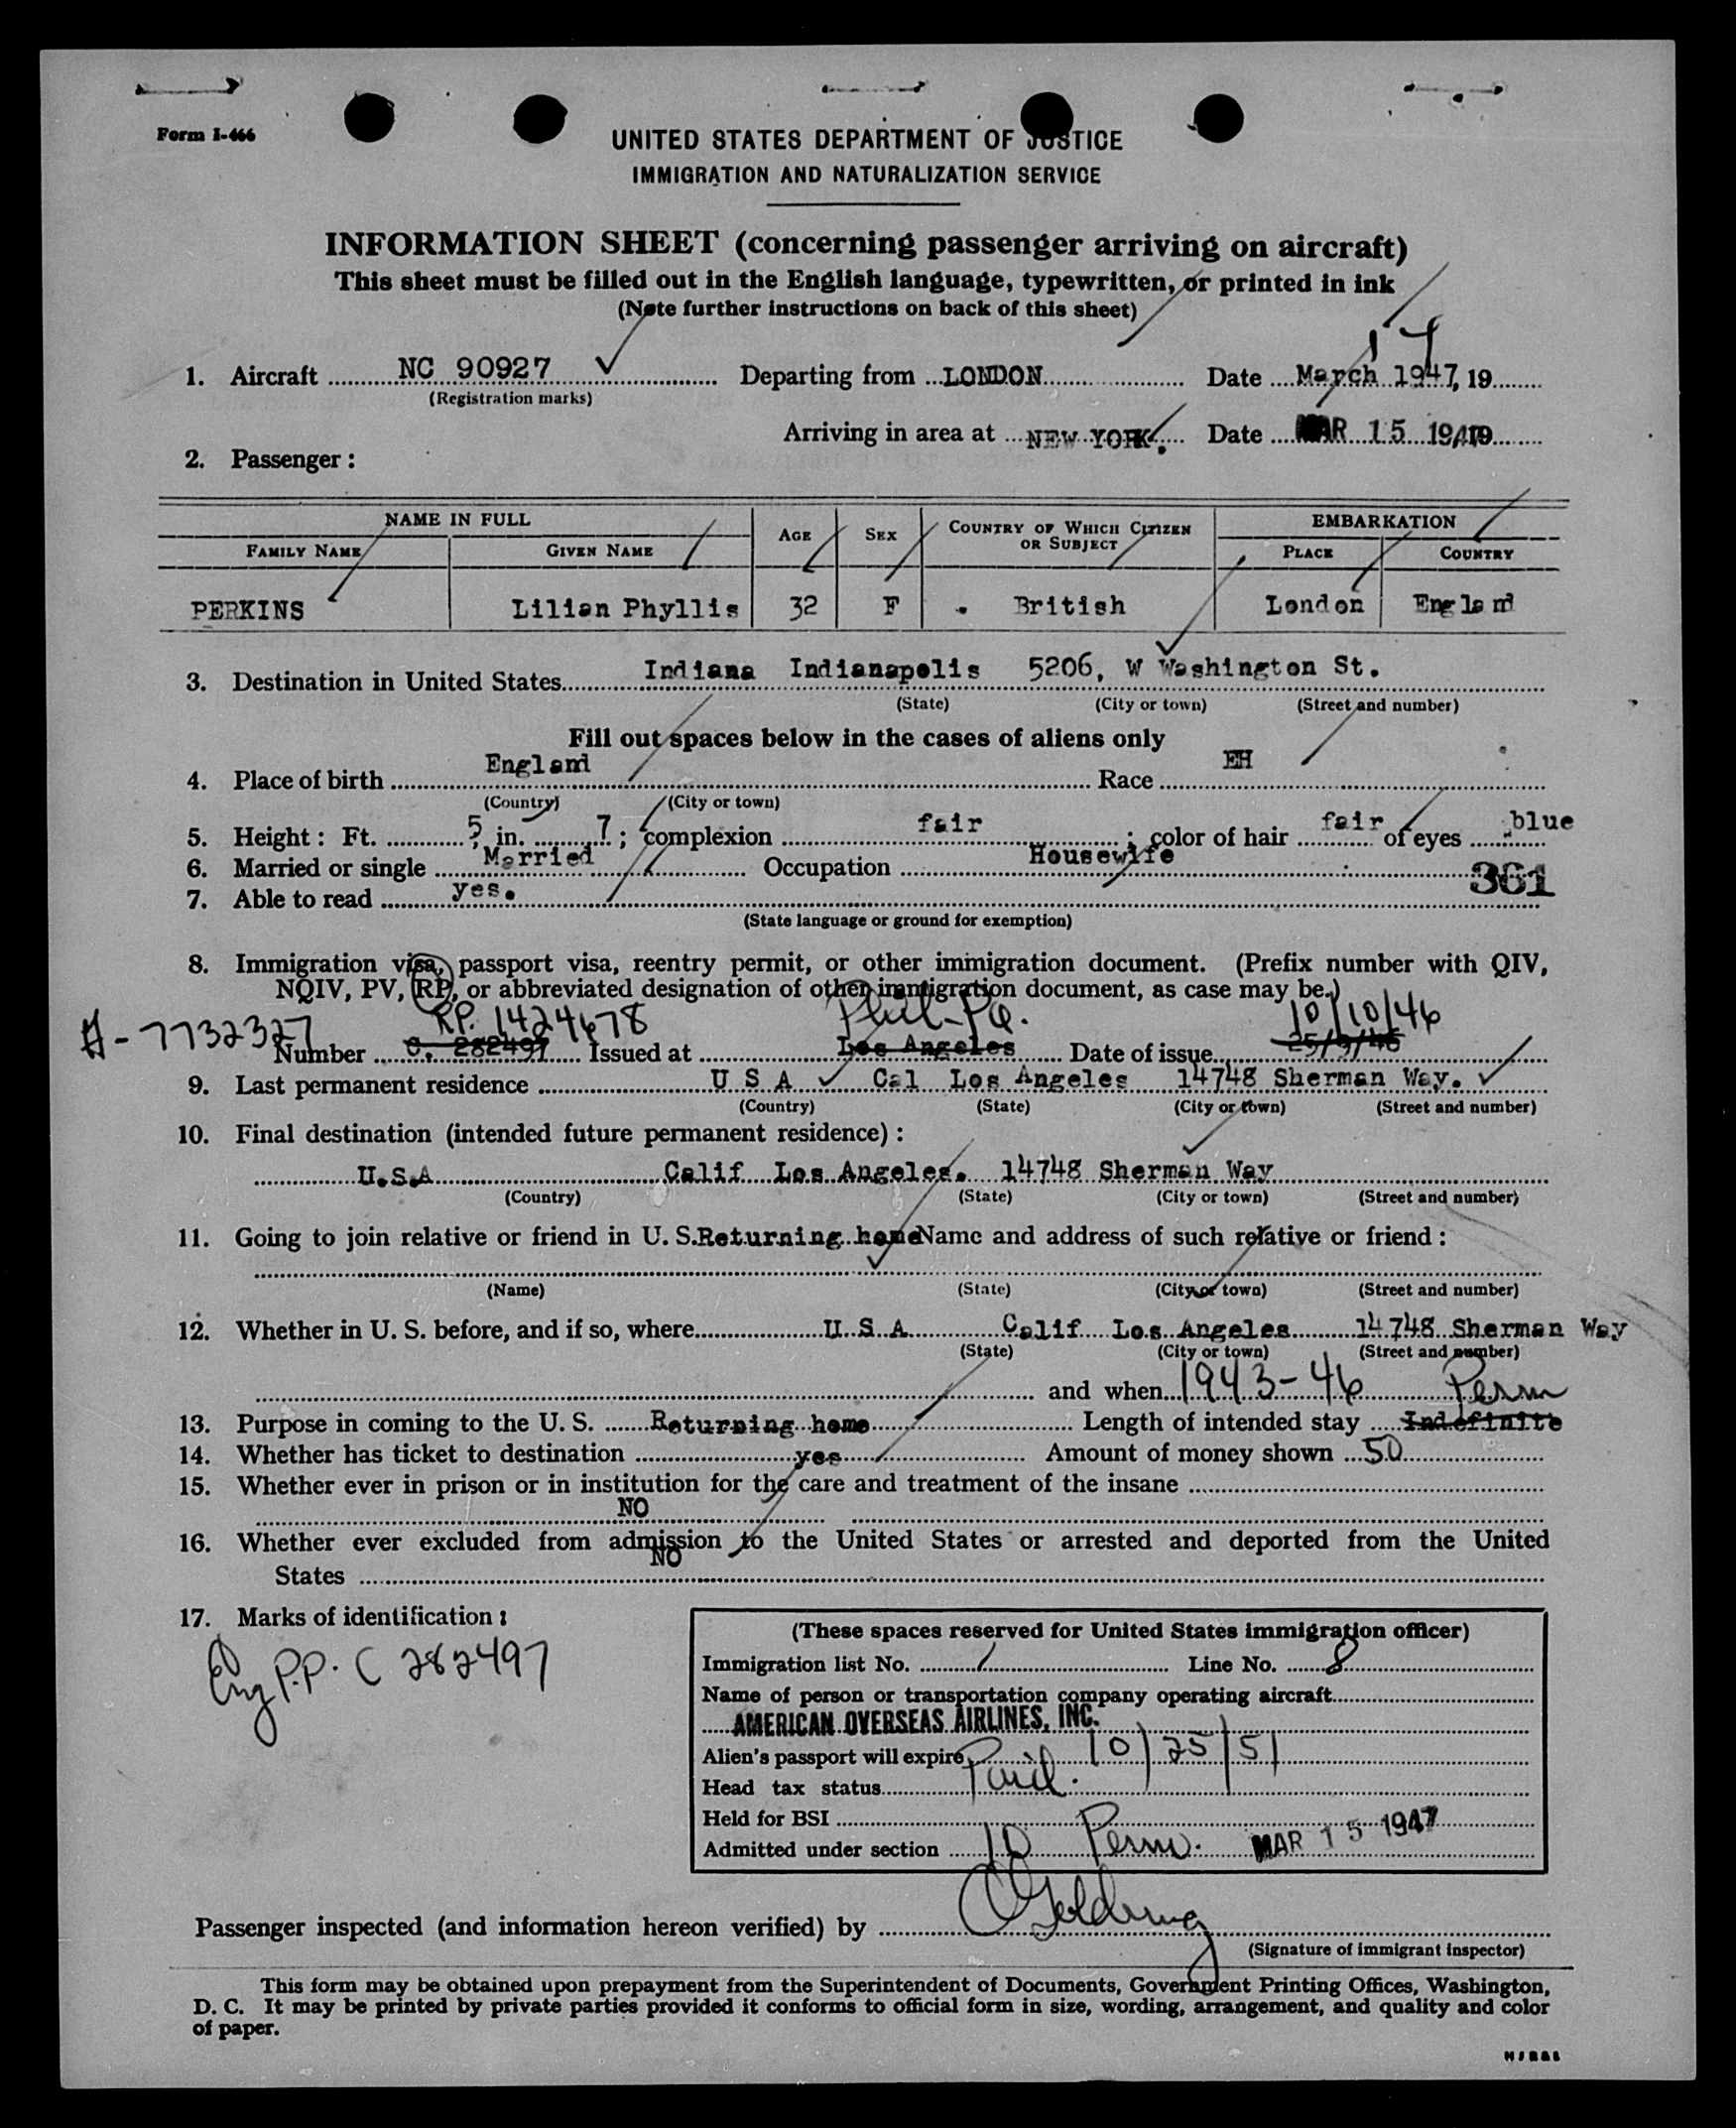 Form I-466
UNITED STATES DEPARTMENT OF JUSTICE
IMMIGRATION AND NATURALIZATION SERVICE
INFORMATION SHEET (concerning passenger arriving on aircraft)
This sheet must be filled out in the English language, typewritten, or printed in ink
(Note further instructions on back of this sheet)
1. Aircraft NC 90927 Departing from LONDON Date March 1947, 19
(Registration marks)
Arriving in area at NEW YORK. Date MAR 15 1947
2. Passenger:
NAME IN FULL AGE SEX COUNTRY OF WHICH CITIZEN OR SUBJECT EMBARKATION
FAMILY NAME GIVEN NAME PLACE COUNTRY
PERKINS Lilian Phyllis 32 F British London England
3. Destination in United States Indiana Indianapolis 5206, W Washington St.
(State) (City or town) (Street and number)
Fill out spaces below in the cases of aliens only
4. Place of birth England Race EH
(Country) (City or town)
5. Height: Ft. 5, in. 7; complexion fair; color of hair fair of eyes blue
6. Married or single Married Occupation Housewife
361
7. Able to read yes.
(State language or ground for exemption)
8. Immigration visa, passport visa, reentry permit, or other immigration document. (Prefix number with QIV,
NQIV, PV, RP, or abbreviated designation of other immigration document, as case may be.)
A-7732327 RP. 1424678 Phil-Pa. 10/10/46
Number C. 282497 Issued at Los Angeles Date of issue 25/9/46
9. Last permanent residence U S A Cal Los Angeles 14748 Sherman Way.
(Country) (State) (City or town) (Street and number)
10. Final destination (intended future permanent residence):
U.S.A Calif Los Angeles. 14748 Sherman Way
(Country) (State) (City or town) (Street and number)
11. Going to join relative or friend in U. S. Returning home Name and address of such relative or friend:
(Name) (State) (City or town) (Street and number)
12. Whether in U. S. before, and if so, where U S A Calif Los Angeles 14748 Sherman Way
(State) (City or town) (Street and number)
and when 1943-46 Perm
13. Purpose in coming to the U. S. Returning home Length of intended stay Indefinite
14. Whether has ticket to destination yes Amount of money shown 50
15. Whether ever in prison or in institution for the care and treatment of the insane
NO
16. Whether ever excluded from admission to the United States or arrested and deported from the United
States NO
17. Marks of identification:
Eng P.P. C 282497
(These spaces reserved for United States immigration officer)
Immigration list No. 1 Line No. 8
Name of person or transportation company operating aircraft
AMERICAN OVERSEAS AIRLINES, INC.
Alien's passport will expire 10/25/51
Head tax status Paid.
Held for BSI
Admitted under section 10 Perm. MAR 15 1947
Passenger inspected (and information hereon verified) by
(Signature of immigrant inspector)
This form may be obtained upon prepayment from the Superintendent of Documents, Government Printing Offices, Washington,
D. C. It may be printed by private parties provided it conforms to official form in size, wording, arrangement, and quality and color
of paper.